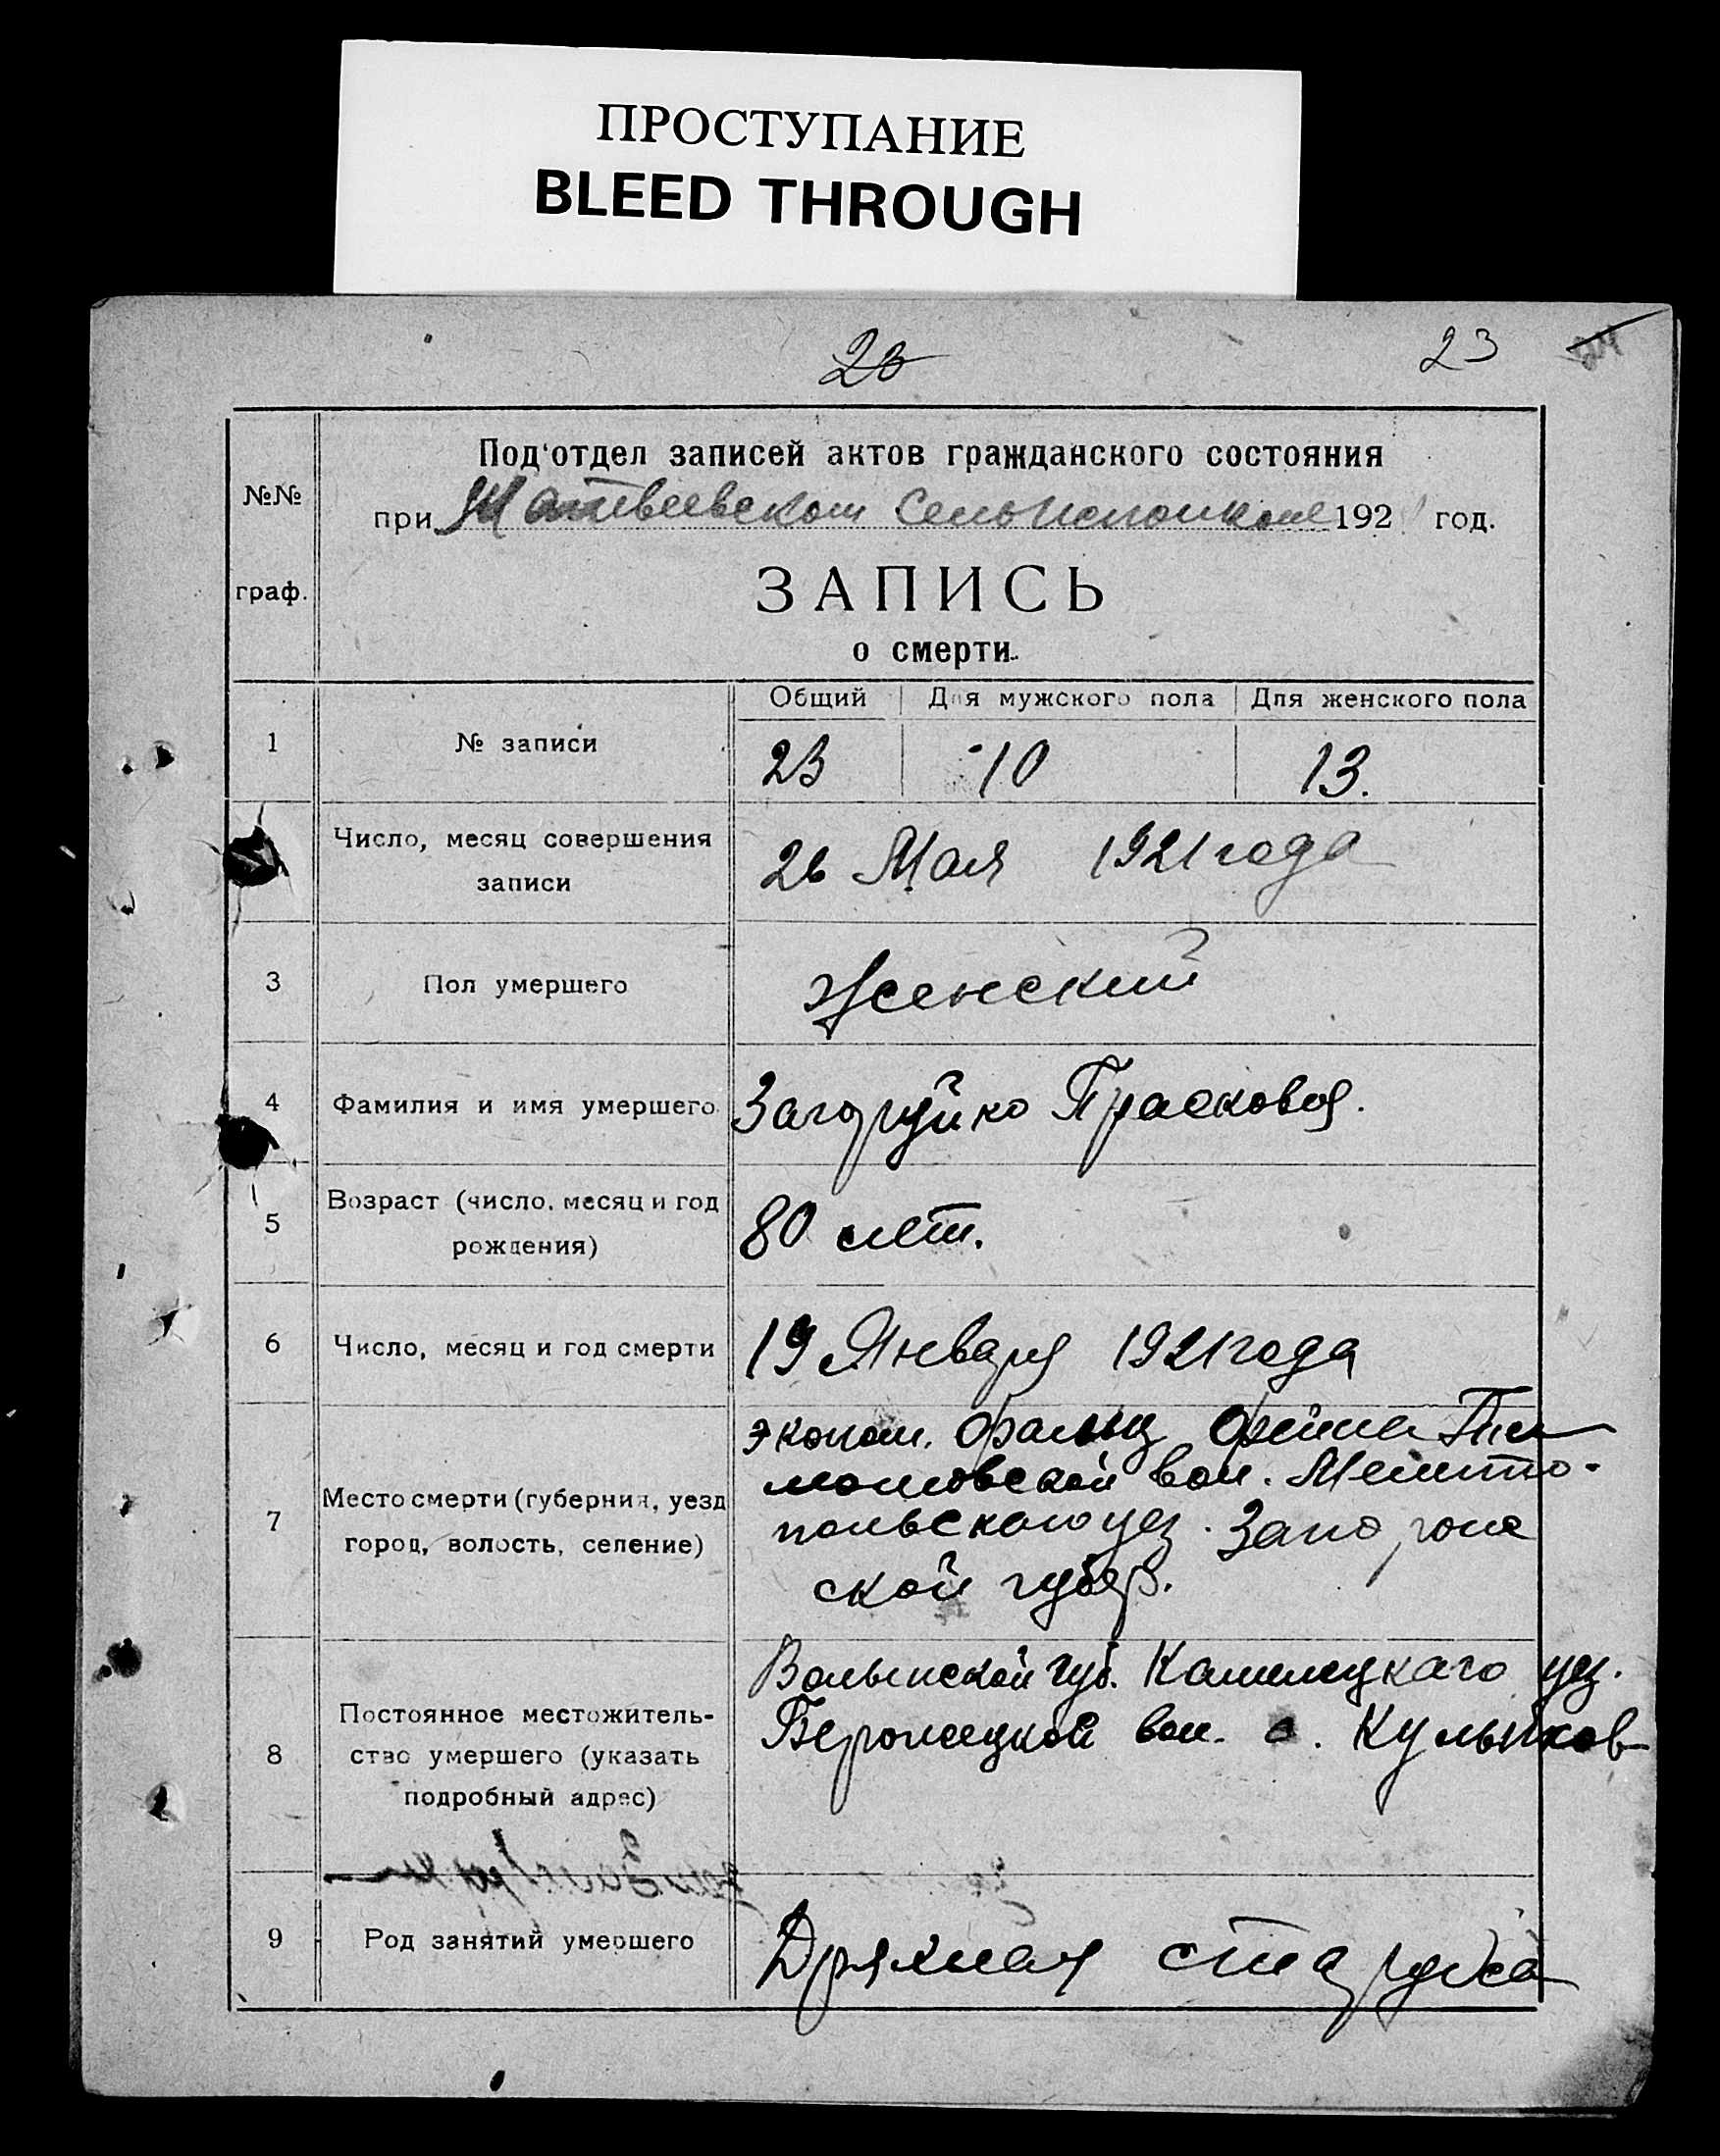 ПРОСТУПАНИЕ
BLEED THROUGH
23
23
№№
граф.
Под'отдел записей актов гражданского состояния
при Матвеевском Сельисполкоме 192 год.
ЗАПИСЬ
о смерти.
Общий Для мужского пола Для женского пола
1 № записи 23 10 13.
Число, месяц совершения
записи
26 Мая 1921 года
3 Пол умершего Женский
4 Фамилия и имя умершего Загоруйко Прасковья.
5 Возраст (число, месяц и год
рождения)
80 лет.
6 Число, месяц и год смерти 19 Января 1921 года
7 Место смерти (губерния, уезд
город, волость, селение)
эконом. Фальц Фейна Ти
мошовской вол. Мелито-
польского уез. Запорож
ской губер.
8 Постоянное местожитель-
ство умершего (указать
подробный адрес)
Волынской губ. уез.
вол. с. Кульчков
9 Род занятий умершего Дряхлая старуха